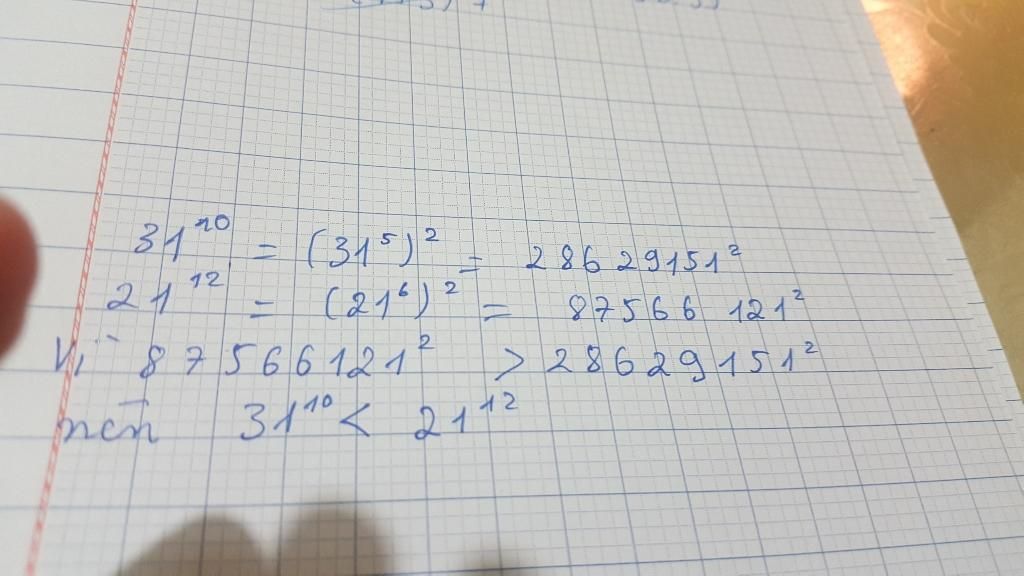 31¹⁰ = (31⁵)² = 28629151²
21¹² = (21⁶)² = 87566 121²
Vì 87566121² > 28629151²
nên 31¹⁰ < 21¹²